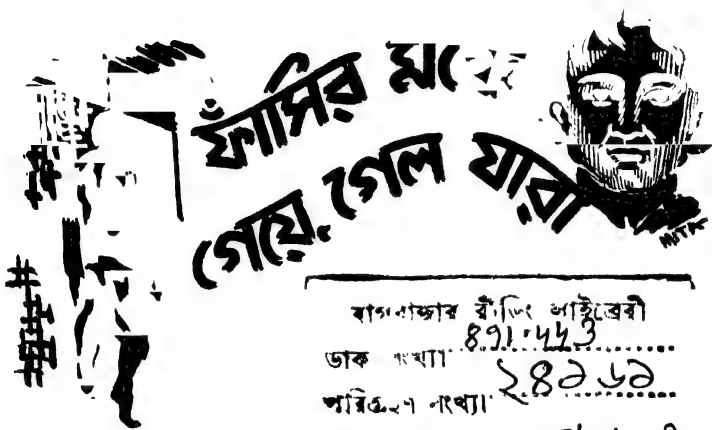 ফাঁসির মঞ্চে
গেয়ে গেল যারা
MITA
বাগবাজার রীডিং লাইব্রেরী
ডাক সংখ্যা 891.443
পরিগ্রহণ সংখ্যা ২৪৯৬৯